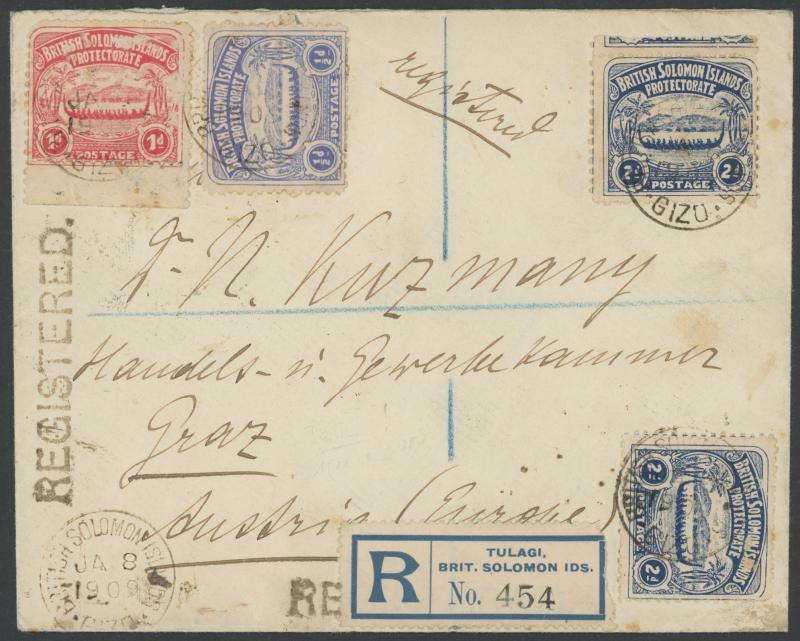 BRITISH SOLOMON ISLANDS
PROTECTORATE
1d 1d
POSTAGE
BRITISH SOLOMON ISLANDS
PROTECTORATE
½d ½d
POSTAGE
registered
BRITISH SOLOMON ISLANDS
PROTECTORATE
2d 2d
POSTAGE
GIZO.
REGISTERED.
Dr. N. Kuzmany
Handels- u. Gewerbekammer
Graz
Austria (Europe)
BRITISH SOLOMON ISLANDS
PROTECTORATE
2d 2d
POSTAGE
BRITISH SOLOMON ISLANDS
JA 8
1909
GIZO
RE
R
TULAGI,
BRIT. SOLOMON IDS.
No. 454